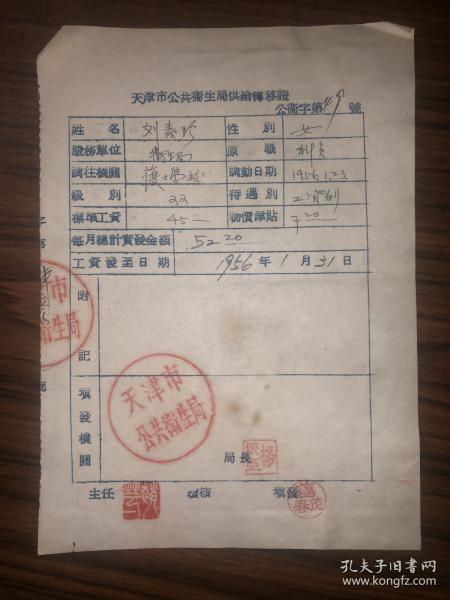 天津市公共衞生局供給轉移證
公衞字第49號
姓名 刘素珍 性別 女
服務單位 衛生局 原職 科員
調往機關 護士學校 調動日期 1956.1.23
級別 22 待遇別 工資制
標準工資 45— 物價津貼 7.20
每月總計實發金額 52.20
工資發至日期 1956年1月31日
附記
天津市
公共衞生局
填發機關
局長
主任 審核 填發
孔夫子旧书网
www.kongfz.com